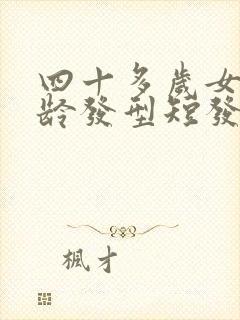 四十多歲女
龄發型短發
楓才